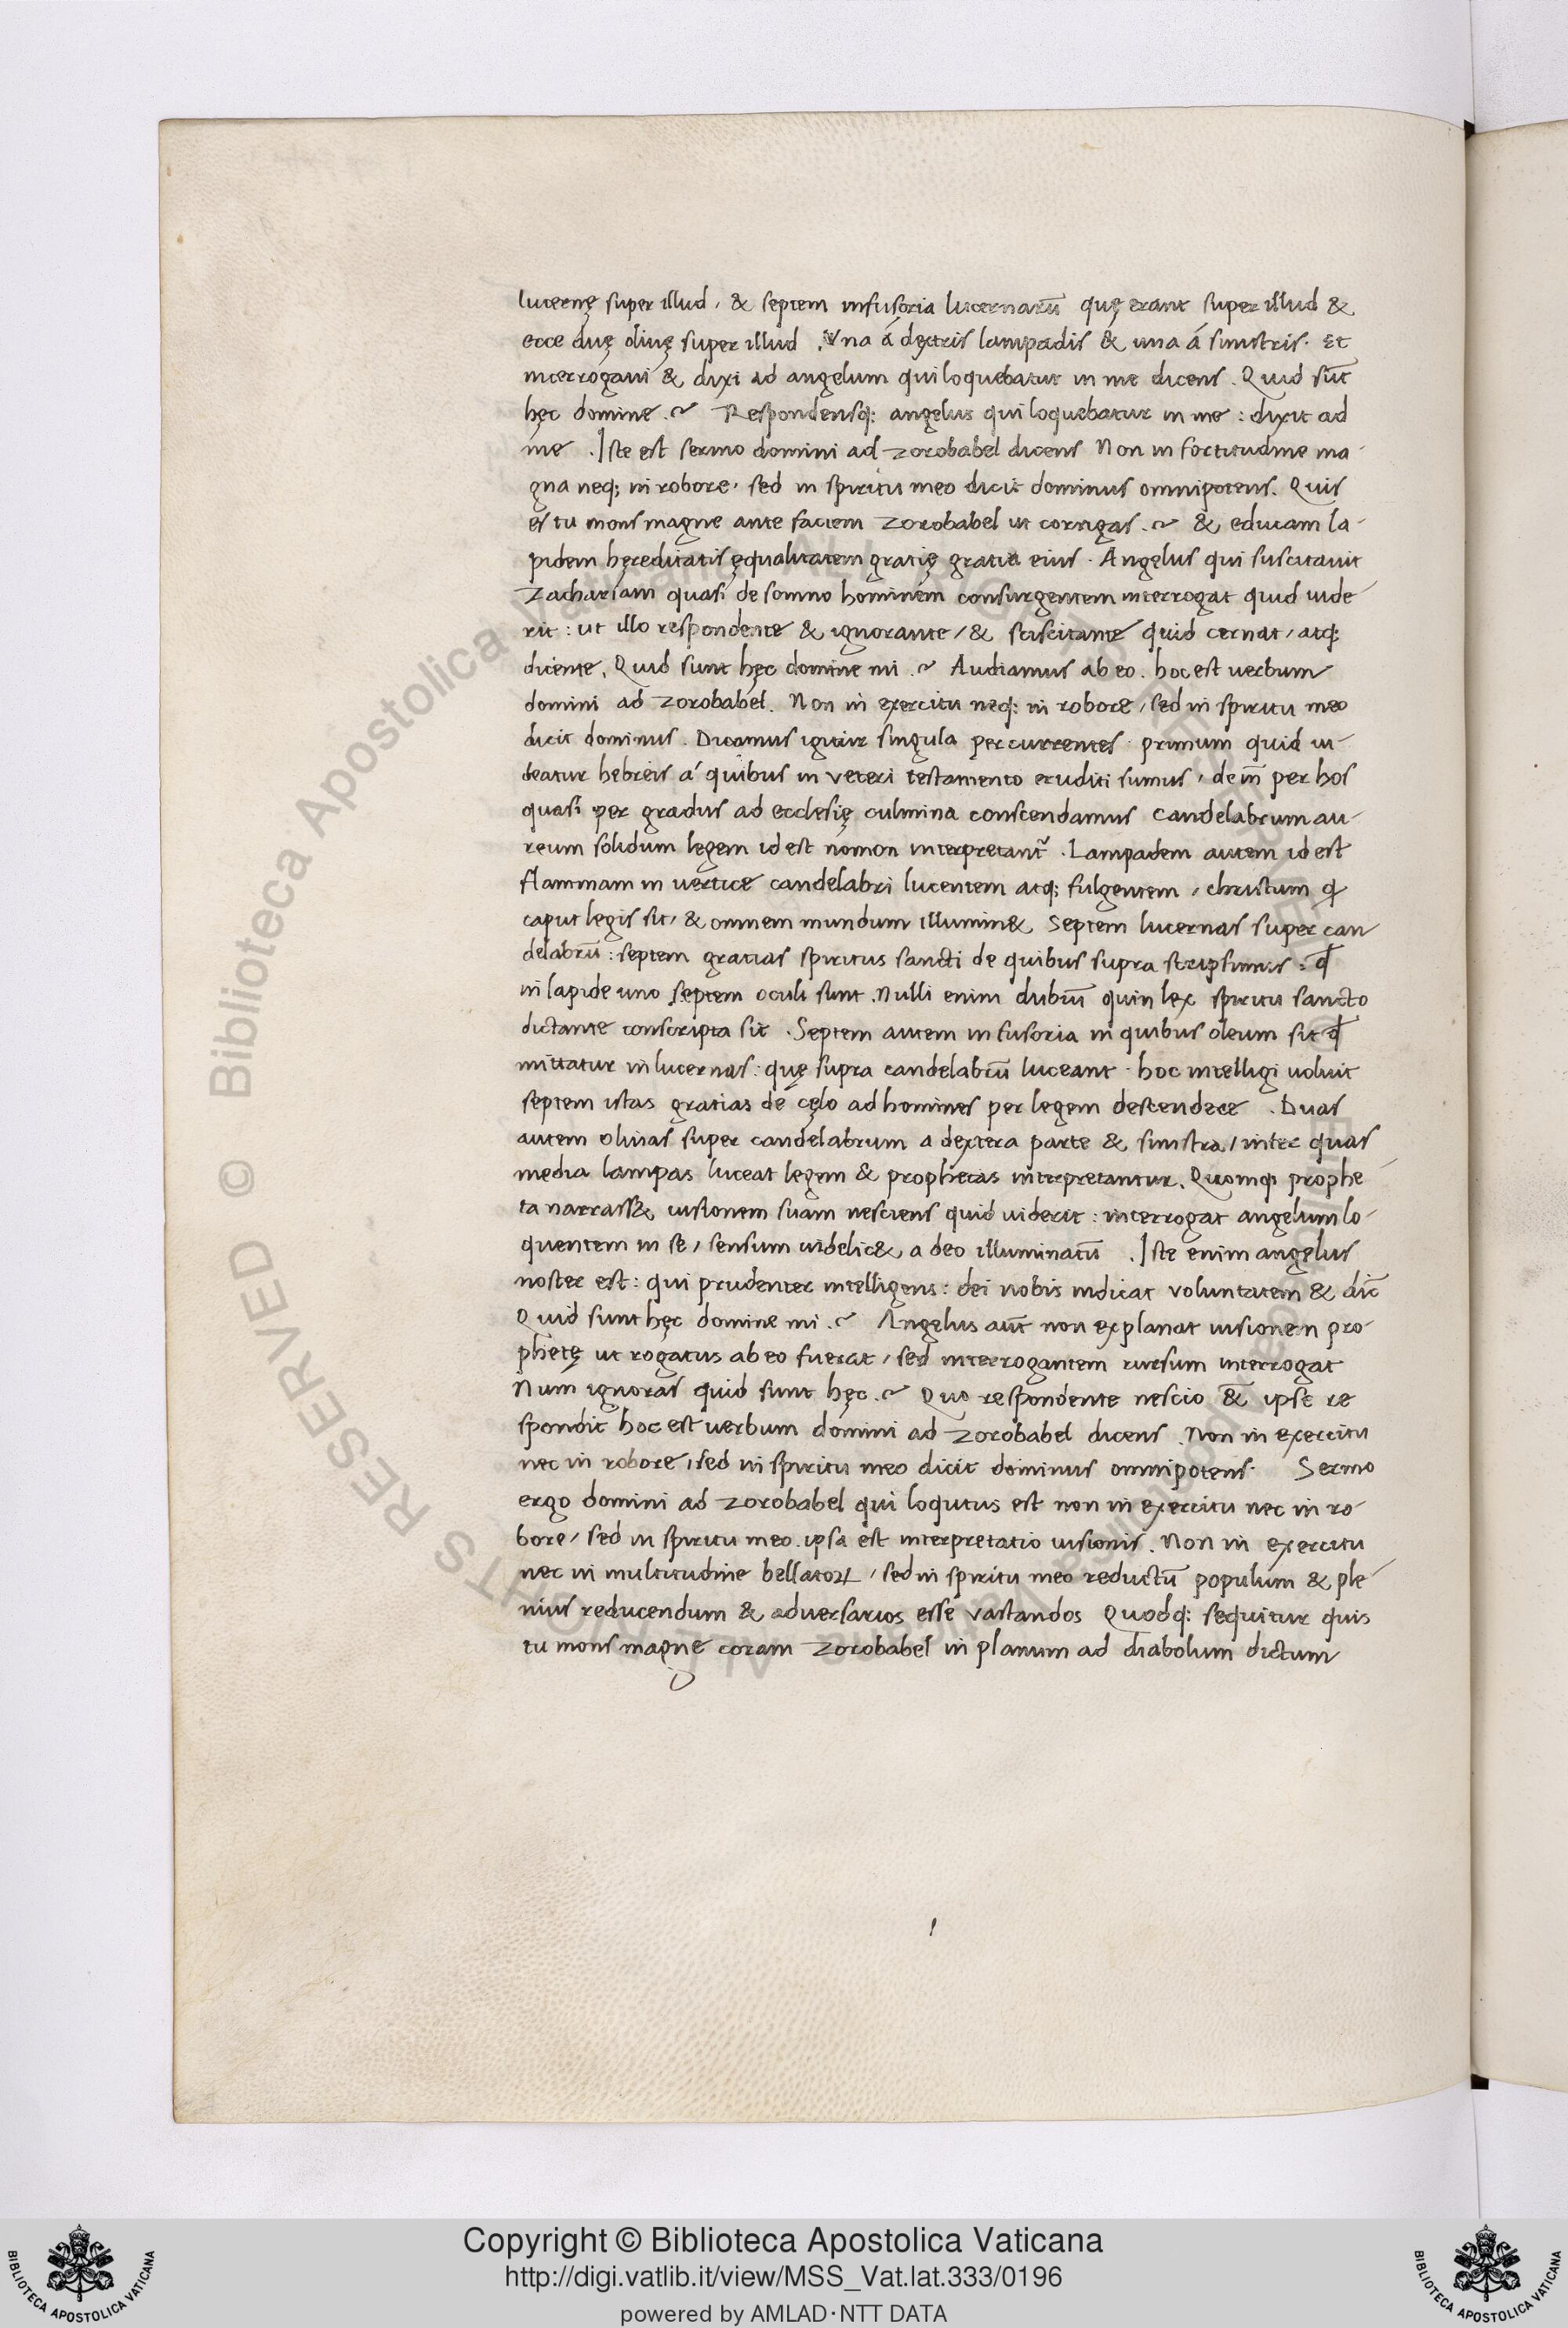 lucernę super illud, & septem infusoria lucernarū quę erant super illud &
ecce duę oliuę super illud . Vna á dextris lampadis & una á sinistris. Et
interrogaui & dixi ad angelum qui loquebatur in me dicens . Quid sūt
hęc domine .~ Respondensq; angelus qui loquebatur in me : dixit ad
me . Iste est sermo domini ad zorobabel dicens Non in fortitudine ma-
gna neq; in robore, sed in spiritu meo dicit dominus omnipotens. Quis
es tu mons magne ante faciem zorobabel ut corrigas .~ & educam la-
pidem hęreditatis ęqualitatem gratię gratia eius . Angelus qui suscitauit
Zachariam quasi de somno hominem consurgentem interrogat quid uide-
rit : ut illo respondente & ignorante / & sciscitante quid cernat / atq;
dicente. Quid sunt hęc domine mi .~ Audiamus ab eo. hoc est uerbum
domini ad zorobabel. Non in exercitu neq; in robore / sed in spiritu meo
dicit dominus . Dicamus igitur singula percurrentes . primum quid ui-
deatur hebreis á quibus in veteri testamento eruditi sumus, dein̄ per hos
quasi per gradus ad ecclesię culmina conscendamus candelabrum au-
reum solidum legem id est nomon interpretant᷑ . Lampadem autem id est
flammam in uertice candelabri lucentem atq; fulgentem, christum ꝙ
caput legis sit, & omnem mundum illumin& Septem lucernas super can
delabrū : septem gratias spiritus sancti de quibus supra scripsimus : ꝙ
in lapide uno septem oculi sunt . Nulli enim dubiū quin lex spiritu sancto
dictante conscripta sit . Septem autem infusoria in quibus oleum sit ꝙ
mittatur in lucernas : quę supra candelabrū luceant . hoc intelligi uoluit
septem istas gratias de cęlo ad homines per legem descendere . Duas
autem oliuas super candelabrum a dextera parte & sinistra, inter quas
media lampas luceat legem & prophetas interpretantur. Quomꝙ prophe-
ta narrass& uisionem suam nesciens quid uiderit : interrogat angelum lo-
quentem in se, sensum uidelic& a deo illuminatū . Iste enim angelus
noster est : qui prudenter intelligens : dei nobis indicat voluntatem & dic̄
Quid sunt hęc domine mi .~ Angelus aūt non explanat uisionem pro-
phetę ut rogatus ab eo fuerat, sed interrogantem rursum interrogat
Num ignoras quid sunt hęc .~ Quo respondente nescio &̄ ipse re
spondit hoc est uerbum domini ad zorobabel dicens . Non in exercitu
nec in robore, sed in spiritu meo dicit dominus omnipotens. Sermo
ergo domini ad zorobabel qui loqutus est non in exercitu nec in ro-
bore, sed in spiritu meo . ipsa est interpretatio uisionis . Non in exercitu
nec in multitudine bellatoꝝ, sed in spiritu meo reductū populum & ple-
nius reducendum & adversarios esse vastandos Quodq; sequitur quis
tu mons magne coram zorobabel in planum ad diabolum dictum
© Biblioteca Apostolica Vaticana ALL RIGHTS RESERVED
Copyright © Biblioteca Apostolica Vaticana
http://digi.vatlib.it/view/MSS_Vat.lat.333/0196
powered by AMLAD·NTT DATA
BIBLIOTECA APOSTOLICA VATICANA
BIBLIOTECA APOSTOLICA VATICANA